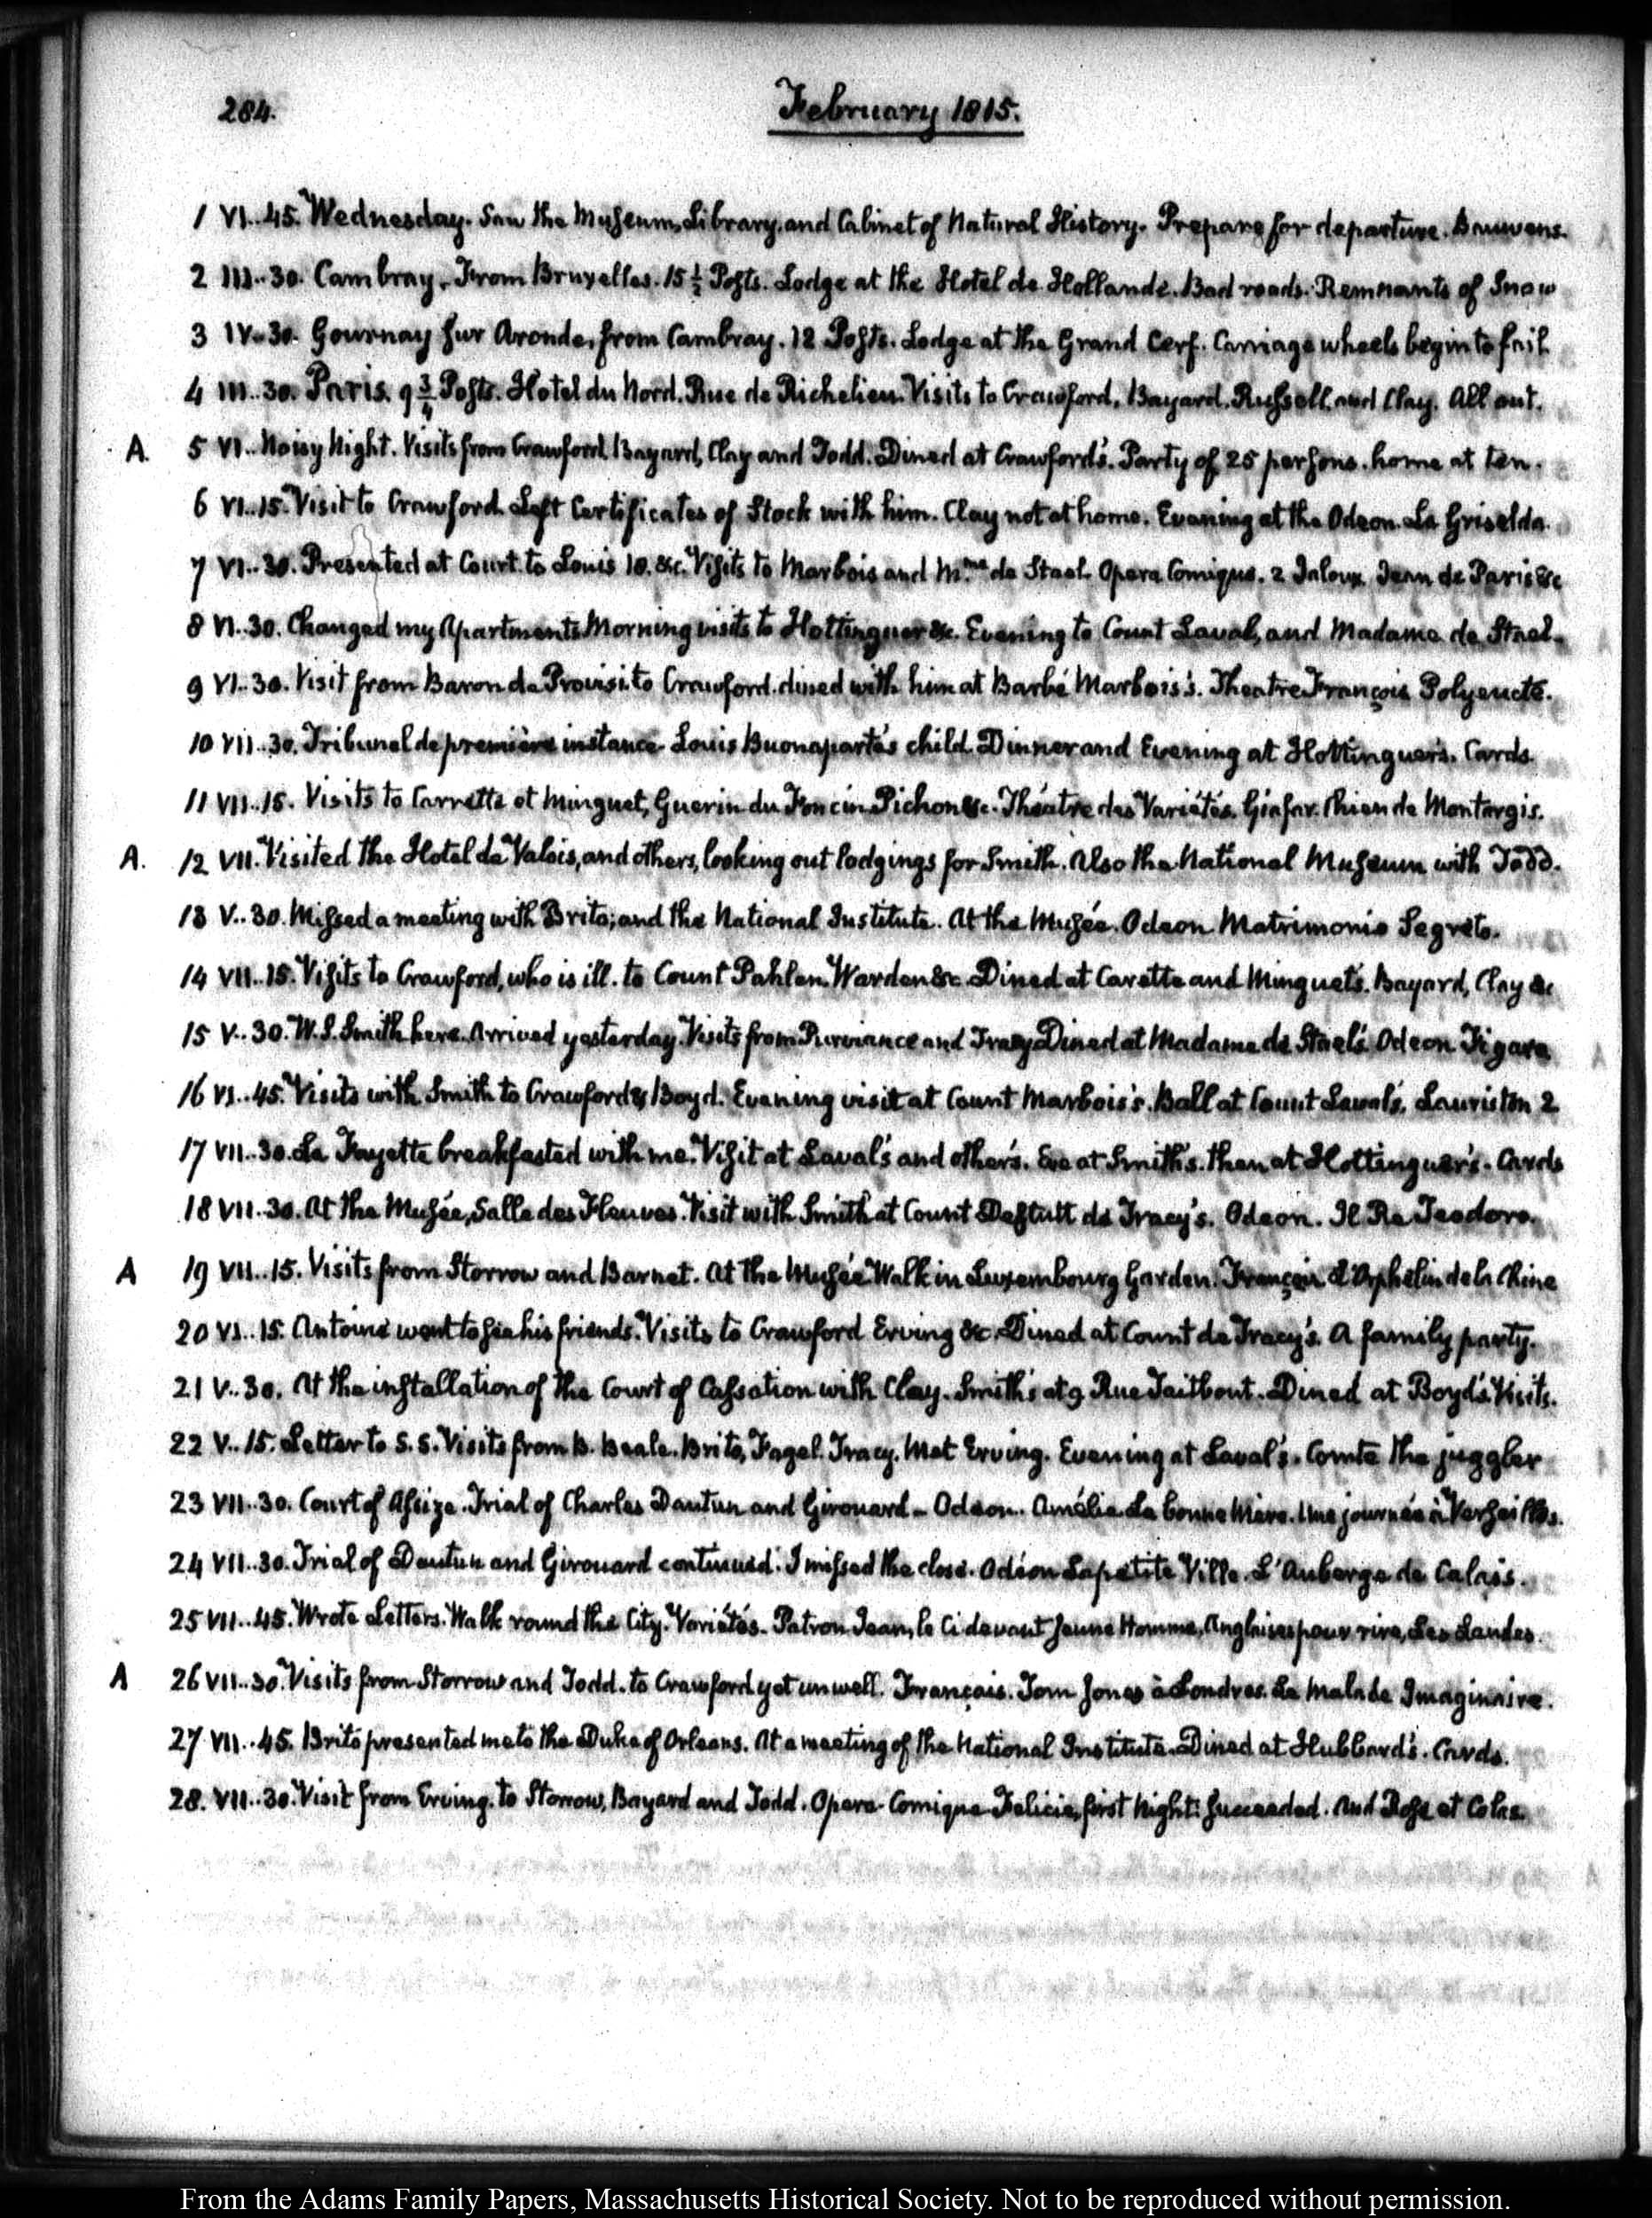 284.
February 1815.
1 VI..45. Wednesday. Saw the Museum, Library, and Cabinet of Natural History. Prepare for departure. Bauwens.
2 III..30. Cambray. From Bruxelles. 15 1/2 Posts. Lodge at the Hotel de Hollande. Bad roads. Remnants of Snow
3 IV..30. Gournay sur Aronde, from Cambray. 12 Posts. Lodge at the Grand Cerf. Carriage wheels begin to fail
4 III..30. Paris. 9 3/4 Posts. Hotel du Nord. Rue de Richelieu. Visits to Crawford, Bayard, Russell, and Clay. All out.
A. 5 VI.. Noisy Night. Visits from Crawford, Bayard, Clay and Todd. Dined at Crawford's. Party of 25 persons. home at ten.
6 VI..15. Visit to Crawford. Left Certificates of Stock with him. Clay not at home. Evening at the Odeon. La Griselda.
7 VI..30. Presented at Court. to Louis 18. &c. Visits to Marbois and Mme. de Stael. Opera Comique. 2 Jaloux. Jean de Paris &c
8 VI..30. Changed my Apartments. Morning visits to Hottinguer &c. Evening to Count Laval, and Madame de Stael.
9 VI..30. Visit from Baron de to Crawford. dined with him at Barbé Marbois's. Theatre François Polyeucte.
10 VII..30. Tribunal de première instance. Louis Buonaparte's child. Dinner and Evening at Hottinguer's. Cards.
11 VII..15. Visits to Carrette et Minguet, Guerin du Foncin, Pichon &c. Théatre des Variétés. Giafar. Chien de Montargis.
A. 12 VII. Visited the Hotel de Valois, and others, looking out lodgings for Smith. Also the National Museum with Todd.
13 V..30. Missed a meeting with Brito; and the National Institute. At the Musée. Odeon. Matrimonio Segreto.
14 VII..15. Visits to Crawford, who is ill. to Count Pahlen, Warden &c. Dined at Carette and Minguet's. Bayard, Clay &c
15 V..30. W.S. Smith here. Arrived yesterday. Visits from Purviance and Tracy. Dined at Madame de Stael's. Odeon Figaro
16 VI..45. Visits with Smith to Crawford & Boyd. Evening visit at Count Marbois's. Ball at Count Laval's. Lauriston 2
17 VII..30. La Fayette breakfasted with me. Visit at Laval's and others. Eve at Smith's. then at Hottinguer's. Cards
18 VII..30. At the Musée, Salle des Fleuves. Visit with Smith at Count Destutt de Tracy's. Odeon. Il Re Teodoro.
A 19 VII..15. Visits from Storrow and Barnet. At the Musée. Walk in Luxembourg Garden. François L'Orphelin de la Chine
20 VI..15. Antoine went to see his friends. Visits to Crawford Erving &c. Dined at Count de Tracy's. A family party.
21 V..30. At the installation of the Court of Cassation with Clay. Smith's at 9 Rue Taitbout. Dined at Boyd's. Visits.
22 V..15. Letter to S.S. Visits from B. Beale. Brito, Fagel. Tracy. Met Erving. Evening at Laval's. Comte the juggler
23 VII..30. Court of Assize. Trial of Charles Dautun and Girouard. Odeon. Amélie. La bonne Mère. Une journée à Versailles.
24 VII..30. Trial of Dautun and Girouard continued. I missed the close. Odéon La petite Ville. L'Auberge de Calais.
25 VII..45. Wrote Letters. Walk round the City. Variétés. Patron Jean, le Ci devant Jeune Homme, Anglaises pour rire, Les Landes.
A 26 VII..30. Visits from Storrow and Todd. to Crawford yet unwell. Français. Tom Jones à Londres. Le Malade Imaginaire.
27 VII..45. Brito presented me to the Duke of Orleans. At a meeting of the National Institute. Dined at Hubbard's. Cards.
28. VII..30. Visit from Erving. to Storrow, Bayard and Todd. Opera-Comique Felicie, first Night: succeeded. And Rose et Colas.
From the Adams Family Papers, Massachusetts Historical Society. Not to be reproduced without permission.